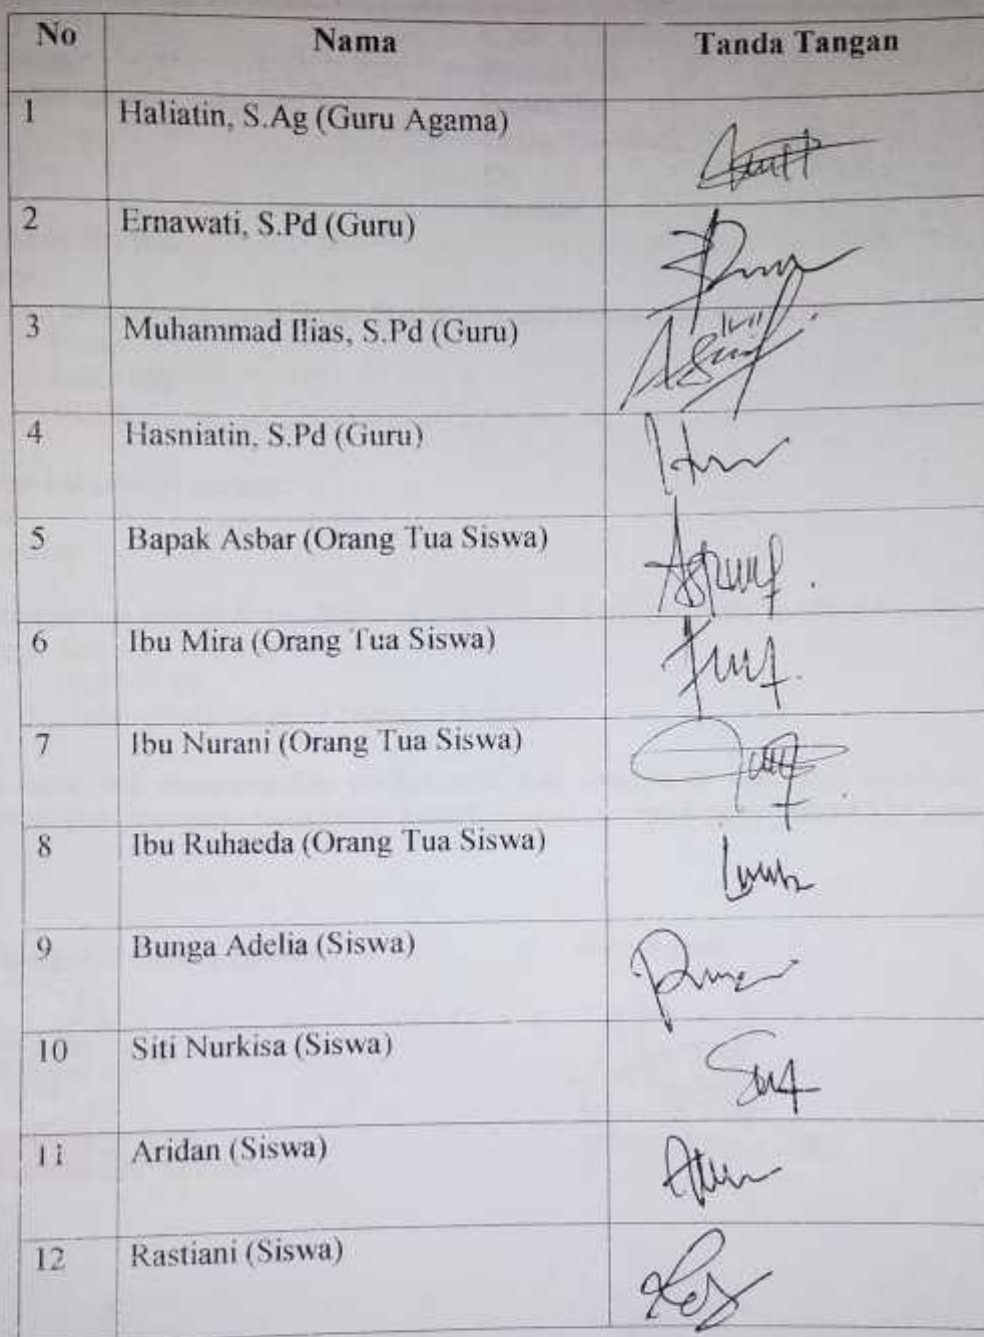 No Nama Tanda Tangan
1 Haliatin, S.Ag (Guru Agama)
2 Ernawati, S.Pd (Guru)
3 Muhammad Ilias, S.Pd (Guru)
4 Hasniatin, S.Pd (Guru)
5 Bapak Asbar (Orang Tua Siswa)
6 Ibu Mira (Orang Tua Siswa)
7 Ibu Nurani (Orang Tua Siswa)
8 Ibu Ruhaeda (Orang Tua Siswa)
9 Bunga Adelia (Siswa)
10 Siti Nurkisa (Siswa)
11 Aridan (Siswa)
12 Rastiani (Siswa)